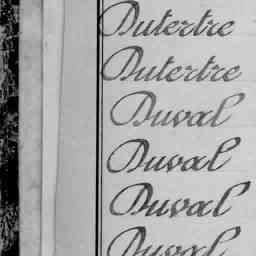 Dutertre
Dutertre
Duval
Duval
Duval
Duval